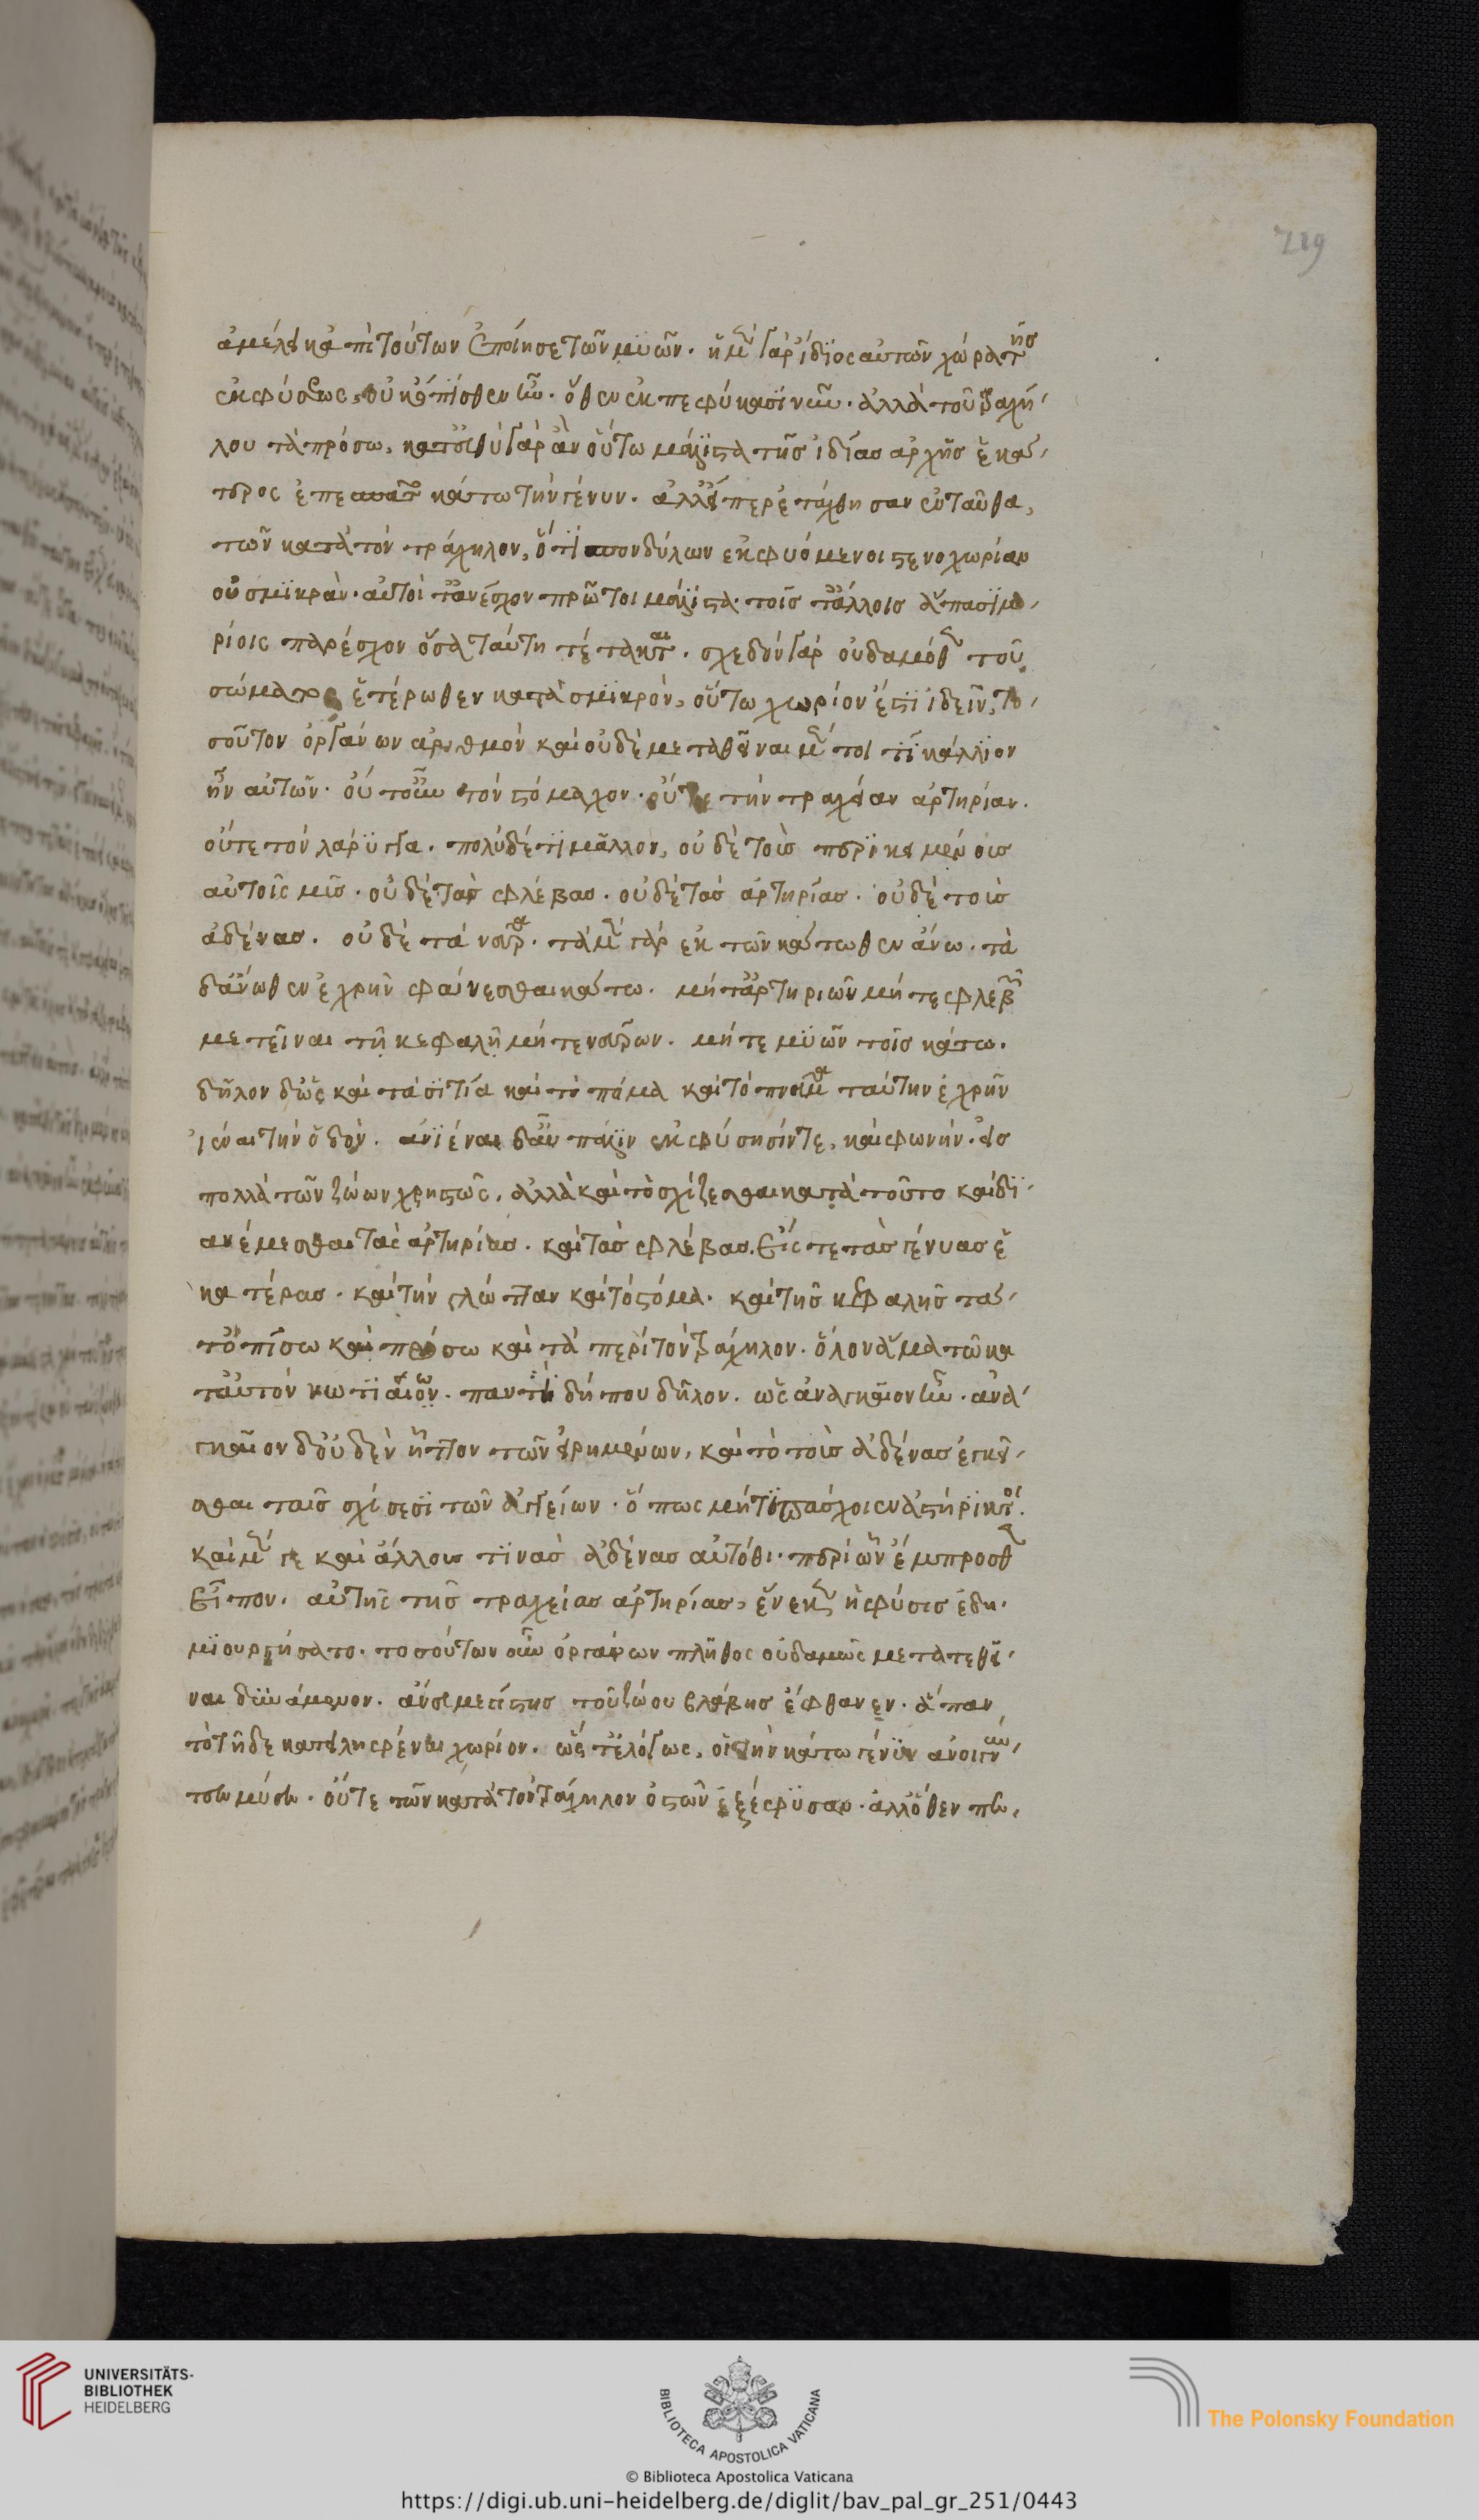 ἀμέλει κἀπὶ τούτων ἐποίησε τῶν μυῶν. ἡ μὲν γὰρ ἴδιος αὐτῶν χώρα τῆς
ἐκφύσεως, οὐκ ὄπισθεν ἦν. ὅθεν ἐκπεφύκασι νῦν. ἀλλὰ τοῦ τραχή-
λου τὰ πρόσω. κατ' εὐθὺ γὰρ ἂν οὕτω μάλιστα τῆς ἰδίας ἀρχῆς ἑκά-
τερος ἐπεσπᾶτο κάτω τὴν γένυν. ἀλλ' εἴπερ ἐτάχθησαν ἐνταῦθα,
τῶν κατὰ τὸν τράχηλον, ὅτι σπονδύλων ἐκφυόμενοι στενοχωρίαν
οὐ σμικρὰν. αὐτοὶ τ' ἂν ἔσχον πρῶτοι μάλιστα. τοῖς τ' ἄλλοις ἅπασι μο-
ρίοις παρέσχον ὅσα ταύτη τέτακται. σχεδὸν γὰρ οὐδαμόθεν τοῦ
σώματος ἑτέρωθεν κατὰ σμικρὸν, οὕτω χωρίον ἔστι ἰδεῖν, το-
σοῦτον ὀργάνων ἀριθμὸν καὶ οὐδὲ μεταθεῖναι μέν τοι τί κάλλιον
ἦν αὐτῶν. οὔτ' οὖν τὸν στόμαχον. οὔτε τὴν τραχεῖαν ἀρτηρίαν.
οὔτε τὸν λάρυγγα. πολὺ δέ τι μᾶλλον, οὐδὲ τοὺς περικειμένους
αὐτοῖς μῦς. οὐδὲ τὰς φλέβας. οὐδὲ τὰς ἀρτηρίας. οὐδὲ τοὺς
ἀδένας. οὐδὲ τὰ νεῦρα. τὰ μὲν γὰρ ἐκ τῶν κάτωθεν ἄνω. τὰ
δ' ἄνωθεν ἐχρῆν φαίνεσθαι κάτω. μήτ' ἀρτηριῶν μήτε φλεβῶν
μετεῖναι τῇ κεφαλῇ μήτε νεύρων. μήτε μυῶν τοῖς κάτω.
δῆλον δ' ὡς καὶ τὰ σιτία καὶ τὸ πόμα καὶ τὸ πνεῦμα ταύτην ἐχρῆν
ἰέναι τὴν ὁδὸν. ἀνιέναι δ' αὖ πάλιν ἐκφύσησίν τε, καὶ φωνήν. εἰς
πολλὰ τῶν ζώων χρηστῶς. ἀλλὰ καὶ τὸ σχίζεσθαι κατὰ τοῦτο καὶ δι-
ανέμεσθαι τὰς ἀρτηρίας. καὶ τὰς φλέβας. εἴς τε τὰς γένυας ἑ
κατέρας. καὶ τὴν γλῶτταν καὶ τὸ στόμα. καὶ τῆς κεφαλῆς τά
τ' ὀπίσω καὶ πρόσω καὶ τὰ περὶ τὸν τράχηλον. ὅλον ἅμα τῷ κα
τ' αὐτὸν νωτιαίῳ. παντὶ δή που δῆλον. ὡς ἀναγκαῖον ἦν. ἀνα-
γκαῖον δ' οὐδὲν ἧττον τῶν εἰρημένων, καὶ τὸ τοὺς ἀδένας ἐγκεῖ-
σθαι ταῖς σχίσεσι τῶν ἀγγείων. ὅπως μή τι πάσχοιεν ἀστήρικτοι.
καὶ μέν γε καὶ ἄλλους τινὰς ἀδένας αὐτόθι. περὶ ὧν ἔμπροσθεν
εἶπον. αὐτῆς τῆς τραχείας ἀρτηρίας, ἕνεκεν ἡ φύσις ἐδη-
μιουργήσατο. τοσούτων οὖν ὀργάνων πλῆθος οὐδαμῶς μετατεθῆ-
ναι δυνάμενον. ἄνευ μεγίστης τοῦ ζώου βλάβης ἔφθανεν. ἅπαν
τὸ τῇδε κατειληφέναι χωρίον. ὥστ' εὐλόγως, οἱ τὴν κάτω γένυν ἀνοιγνύν-
των μύων. οὔτε τῶν κατὰ τὸν τράχηλον ὀστῶν ἐξέφυσαν. ἀλλόθεν πω,
219
UNIVERSITÄTS-
BIBLIOTHEK
HEIDELBERG
BIBLIOTECA APOSTOLICA VATICANA
The Polonsky Foundation
© Biblioteca Apostolica Vaticana
https://digi.ub.uni-heidelberg.de/diglit/bav_pal_gr_251/0443